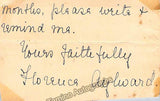 months, please write &
remind me.
Yours faithfully
Florence